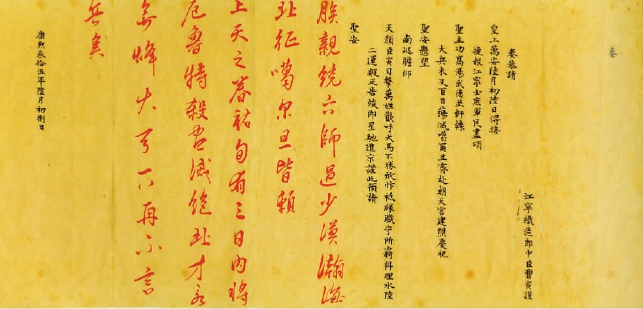 奏
江寧織造郎中臣曹寅謹
奏恭請
皇上萬安陸月初陸日得接
捷報江寧士庶軍民盡頌
聖主功高湯武德並軒轅
大兵未及百日撲滅噶爾旦齊赴朝天宮建醮慶祝
聖安懸望
南巡瞻仰
天顏臣寅目擊萬姓歡呼犬馬不勝欣忭祗緣職守所羈料理水陸
二運緞疋告竣即星馳進京謹此預請
聖安
朕親統六師過少漠瀚海
北征噶尔旦皆賴
上天之眷祐旬有三日內將
厄魯特殺滅絕北方永
無烽火了再不言
兵矣
康熙叁拾伍年陸月初捌日